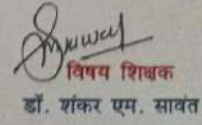 विषय शिक्षक
डॉ. शंकर एम. सावंत